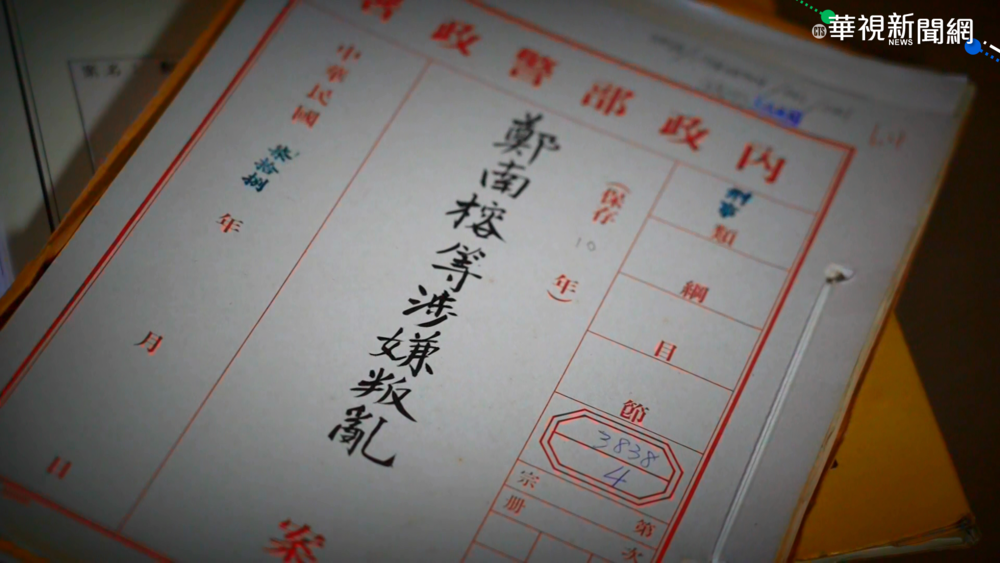 華視新聞網
CTS NEWS
內政部警政署
刑事類
綱
目
節
3838
4
宗
冊
第
次
(保存10年)
鄭南榕等涉嫌叛亂
案
中華民國柒拾捌年
月
日